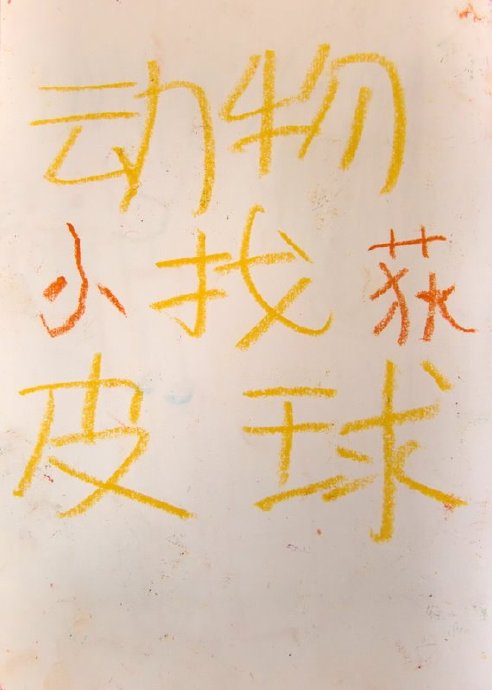 动物
小找荻
皮球